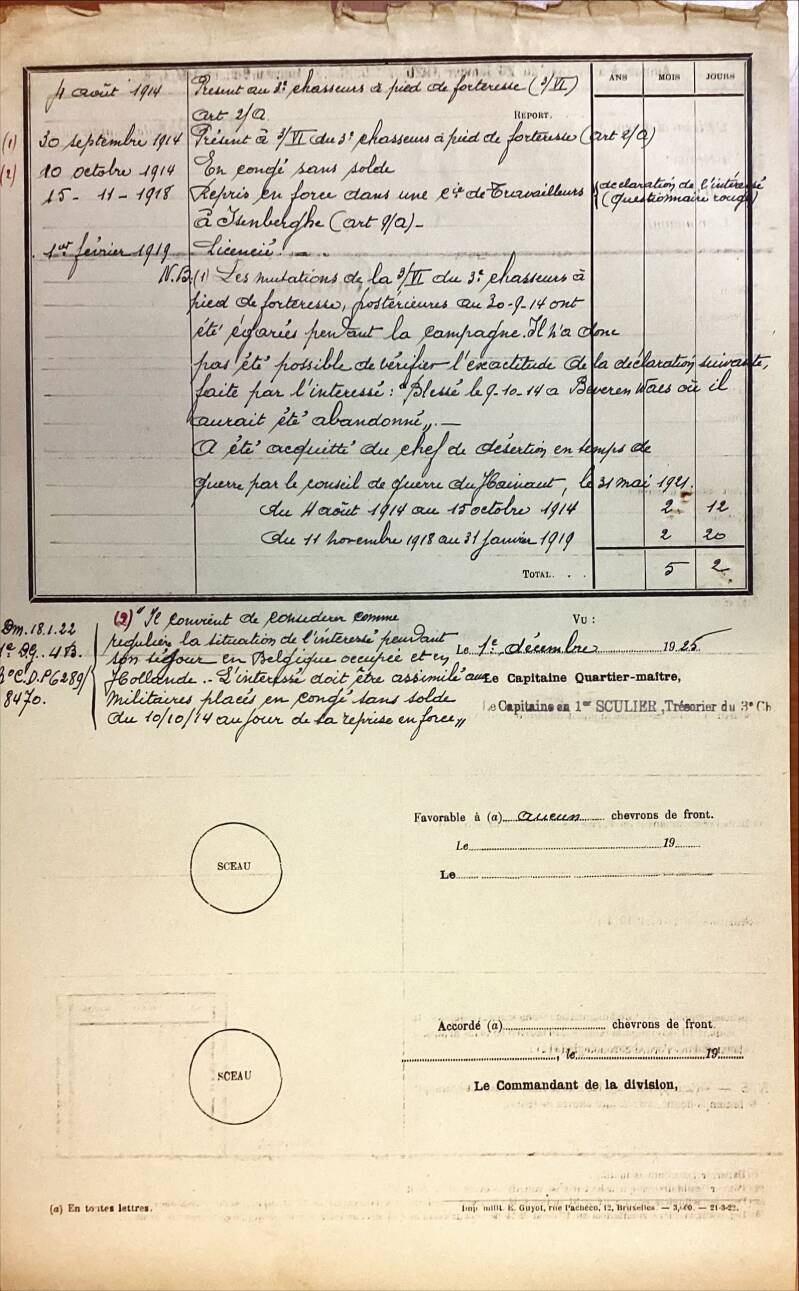 ANS MOIS JOURS
4 août 1914 Présent au 3e chasseurs à pied de forteresse (3/VI)
art 2/A. REPORT.
(1) 30 septembre 1914 Présent à 3/VI du 3e chasseurs à pied de forteresse (art 2/A)
(2) 10 octobre 1914 En congé sans solde
15 - 11 - 1918 Repris en force dans une Cie de Travailleurs (déclaration de l'intéressé
à Isenberghe (art 2/A) - (questionnaire rouge)
1er février 1919 Licencié. - . -
N.B. (1) Les mutations de la 3/VI du 3e chasseurs à
pied de forteresse, postérieures au 30-9-14 ont
été égarées pendant la campagne. Il n'a donc
pas été possible de vérifier l'exactitude de la déclaration suivante,
faite par l'interessé : "Blessé le 9-10-14 a Beveren Waes où il
aurait été abandonné„. -
A été acquitté du chef de désertion en temps de
guerre par le conseil de guerre du Hainaut, le 31 mai 1921.
du 4 août 1914 au 15 octobre 1914 2 12
du 11 novembre 1918 au 31 janvier 1919 2 20
TOTAL. . . 5 2
Dm. 18.1.22
1e D.G. 4 B.
C.D.P 6289/
8470.
(2) "Il convient de considerer comme
regulière la situation de l'interessé pendant
son séjour en Belgique occupée et en
Hollande .. L'interessé doit être assimilé aux
Militaires placés en congé sans solde
du 10/10/14 au jour de sa reprise en force„
VU :
Le 1er décembre 1925
Le Capitaine Quartier-maître,
Le Capitaine en 1er SCULIER, Trésorier du 3e Ch
Favorable à (a) aucun chevrons de front.
Le 19
SCEAU
Le
Accordé (a) chevrons de front
, le 19
SCEAU
Le Commandant de la division,
(a) En toutes lettres.
Imp. milit. E. Guyot, rue Pachéco, 12, Bruxelles. — 21-3-22.